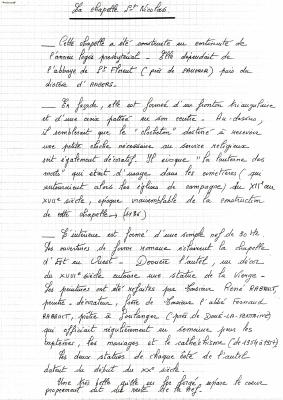 La chapelle St Nicolas.
__ Cette chapelle a été construite en continuité de
l'ancien logis presbytéral. Elle dépendait de
l'abbaye de St Florent (près de SAUMUR) puis du
diocèse d'ANGERS.
__ En façade, elle est formée d'un fronton triangulaire
et d'une croix pattée en son centre. Au-dessus,
il semblerait que le "clocheton" destiné à recevoir
une petite cloche nécessaire au service religieux
soit également décoratif. Il évoque "la lanterne des
morts" qui était d'usage dans les cimetières (qui
entouraient alors les églises de campagne) du XIIe au
XVIIe siècle, époque vraisemblable de la construction
de cette chapelle
__ L'intérieur est formé d'une simple nef de 30 M2.
Les ouvertures de forme romane éclairent la chapelle
d'Est en Ouest. Derrière l'autel, un décor
du XVIIIe siècle entoure une statue de la Vierge.
Les peintures ont été refaites par Monsieur René RABAULT,
peintre-décorateur, frère de Monsieur l'abbé Fernand
RABAULT, prêtre à Soulanger (près de DOUÉ-LA-FONTAINE)
qui officiait régulièrement en semaine pour les
baptêmes, les mariages et le catéchisme (de 1954 à 1957)
Les deux statues de chaque côté de l'autel
datent du début du XXe siècle.
Une très belle grille en fer forgé sépare le chœur
proprement dit du reste de la nef.